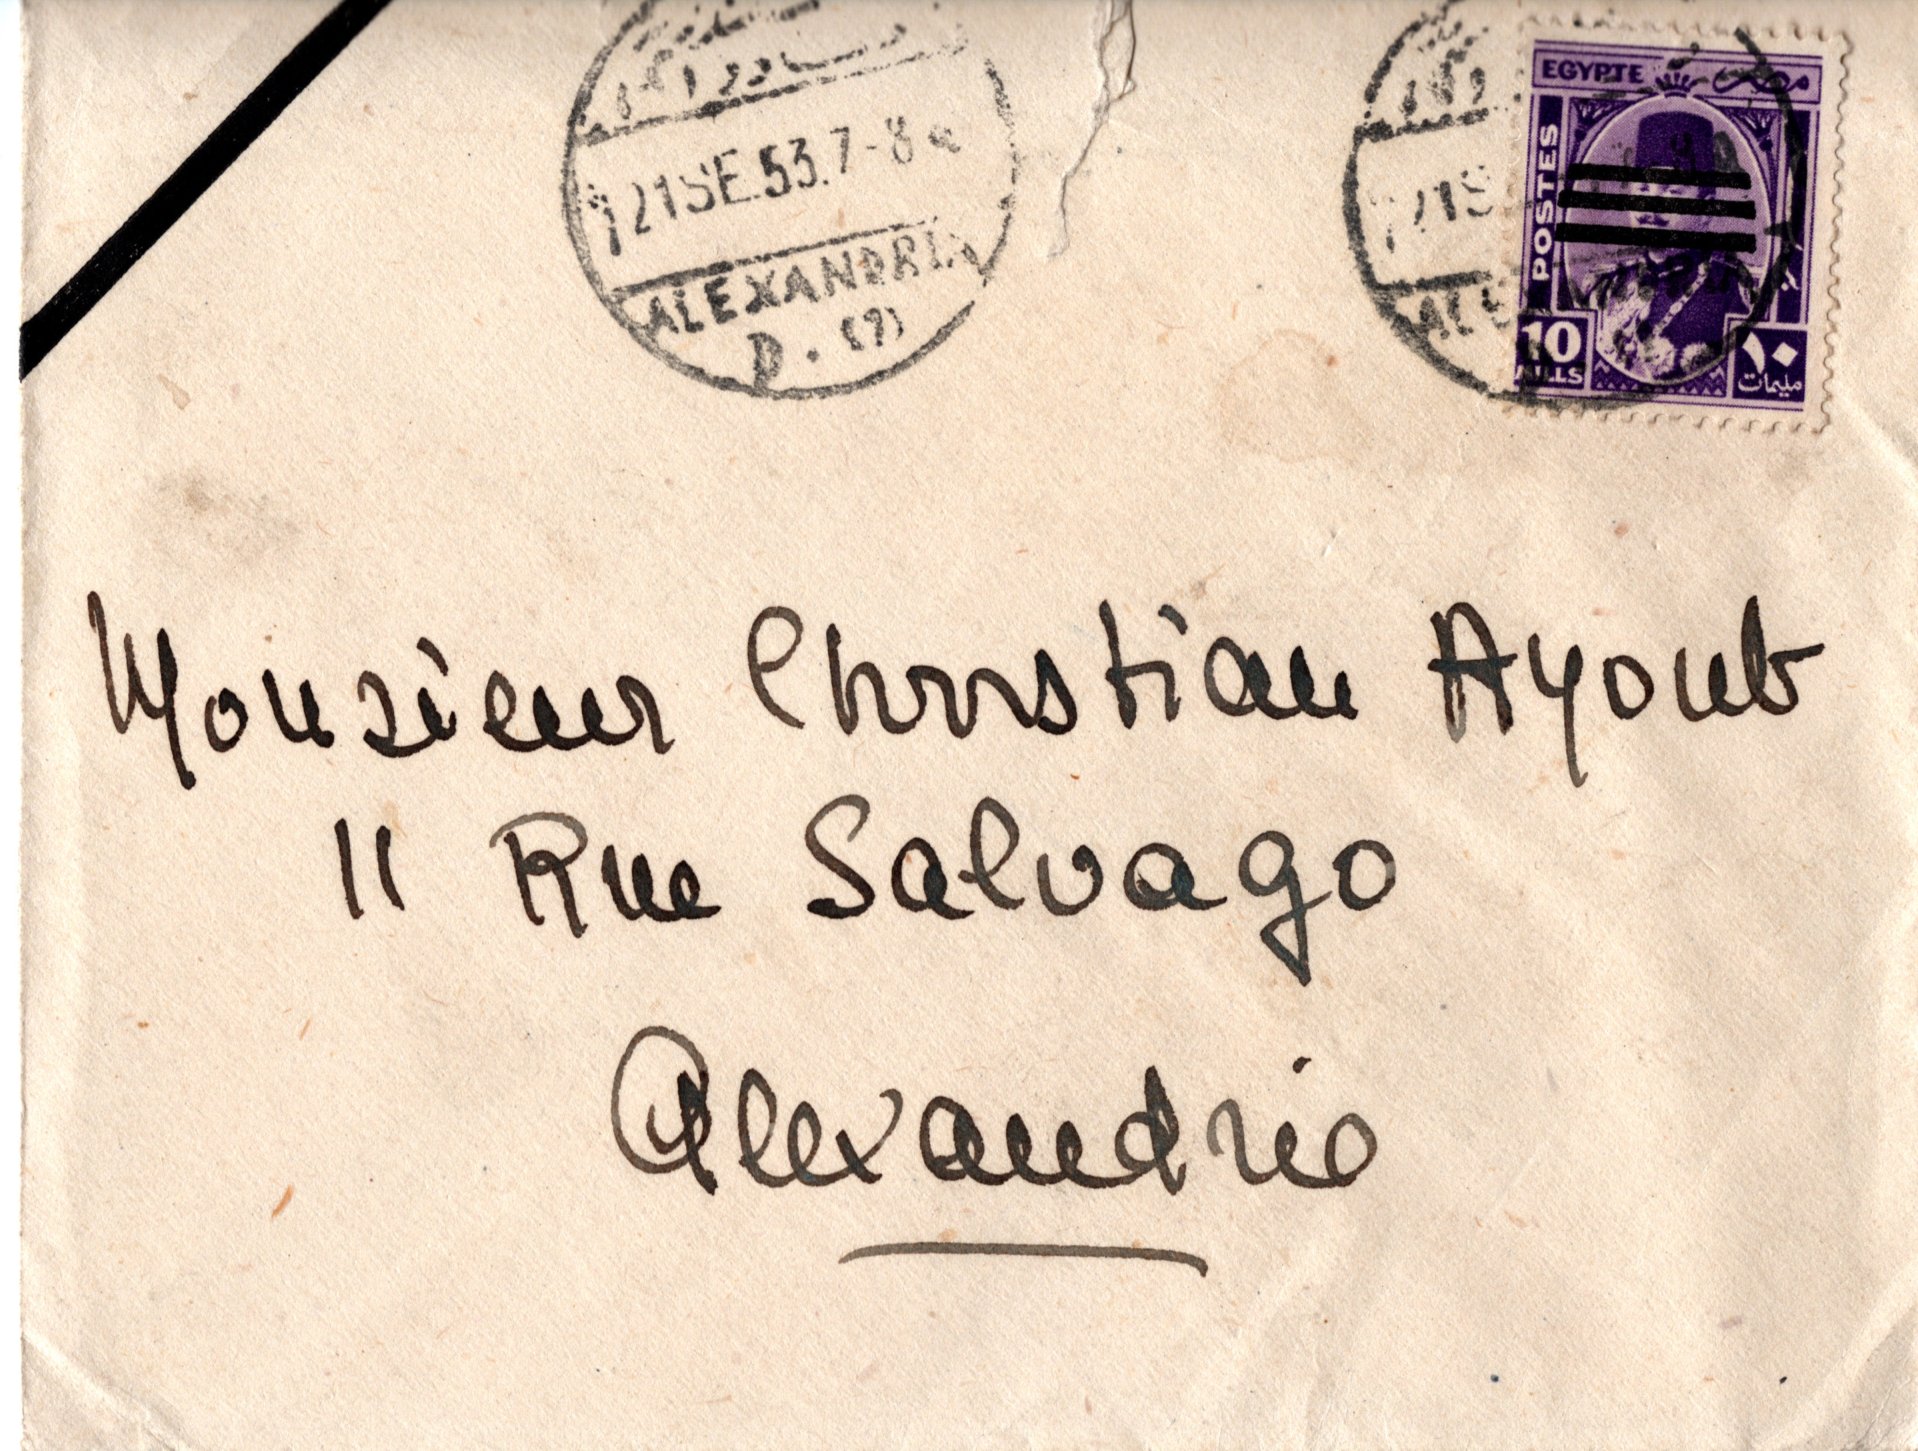 21 SE.53.7-8
ALEXANDRIA
D. (9)
21 S
ALE
EGYPTE مصر
POSTES
10 ١٠
MILLS مليمات
Monsieur Christian Ayoub
11 Rue Salvago
Alexandrie